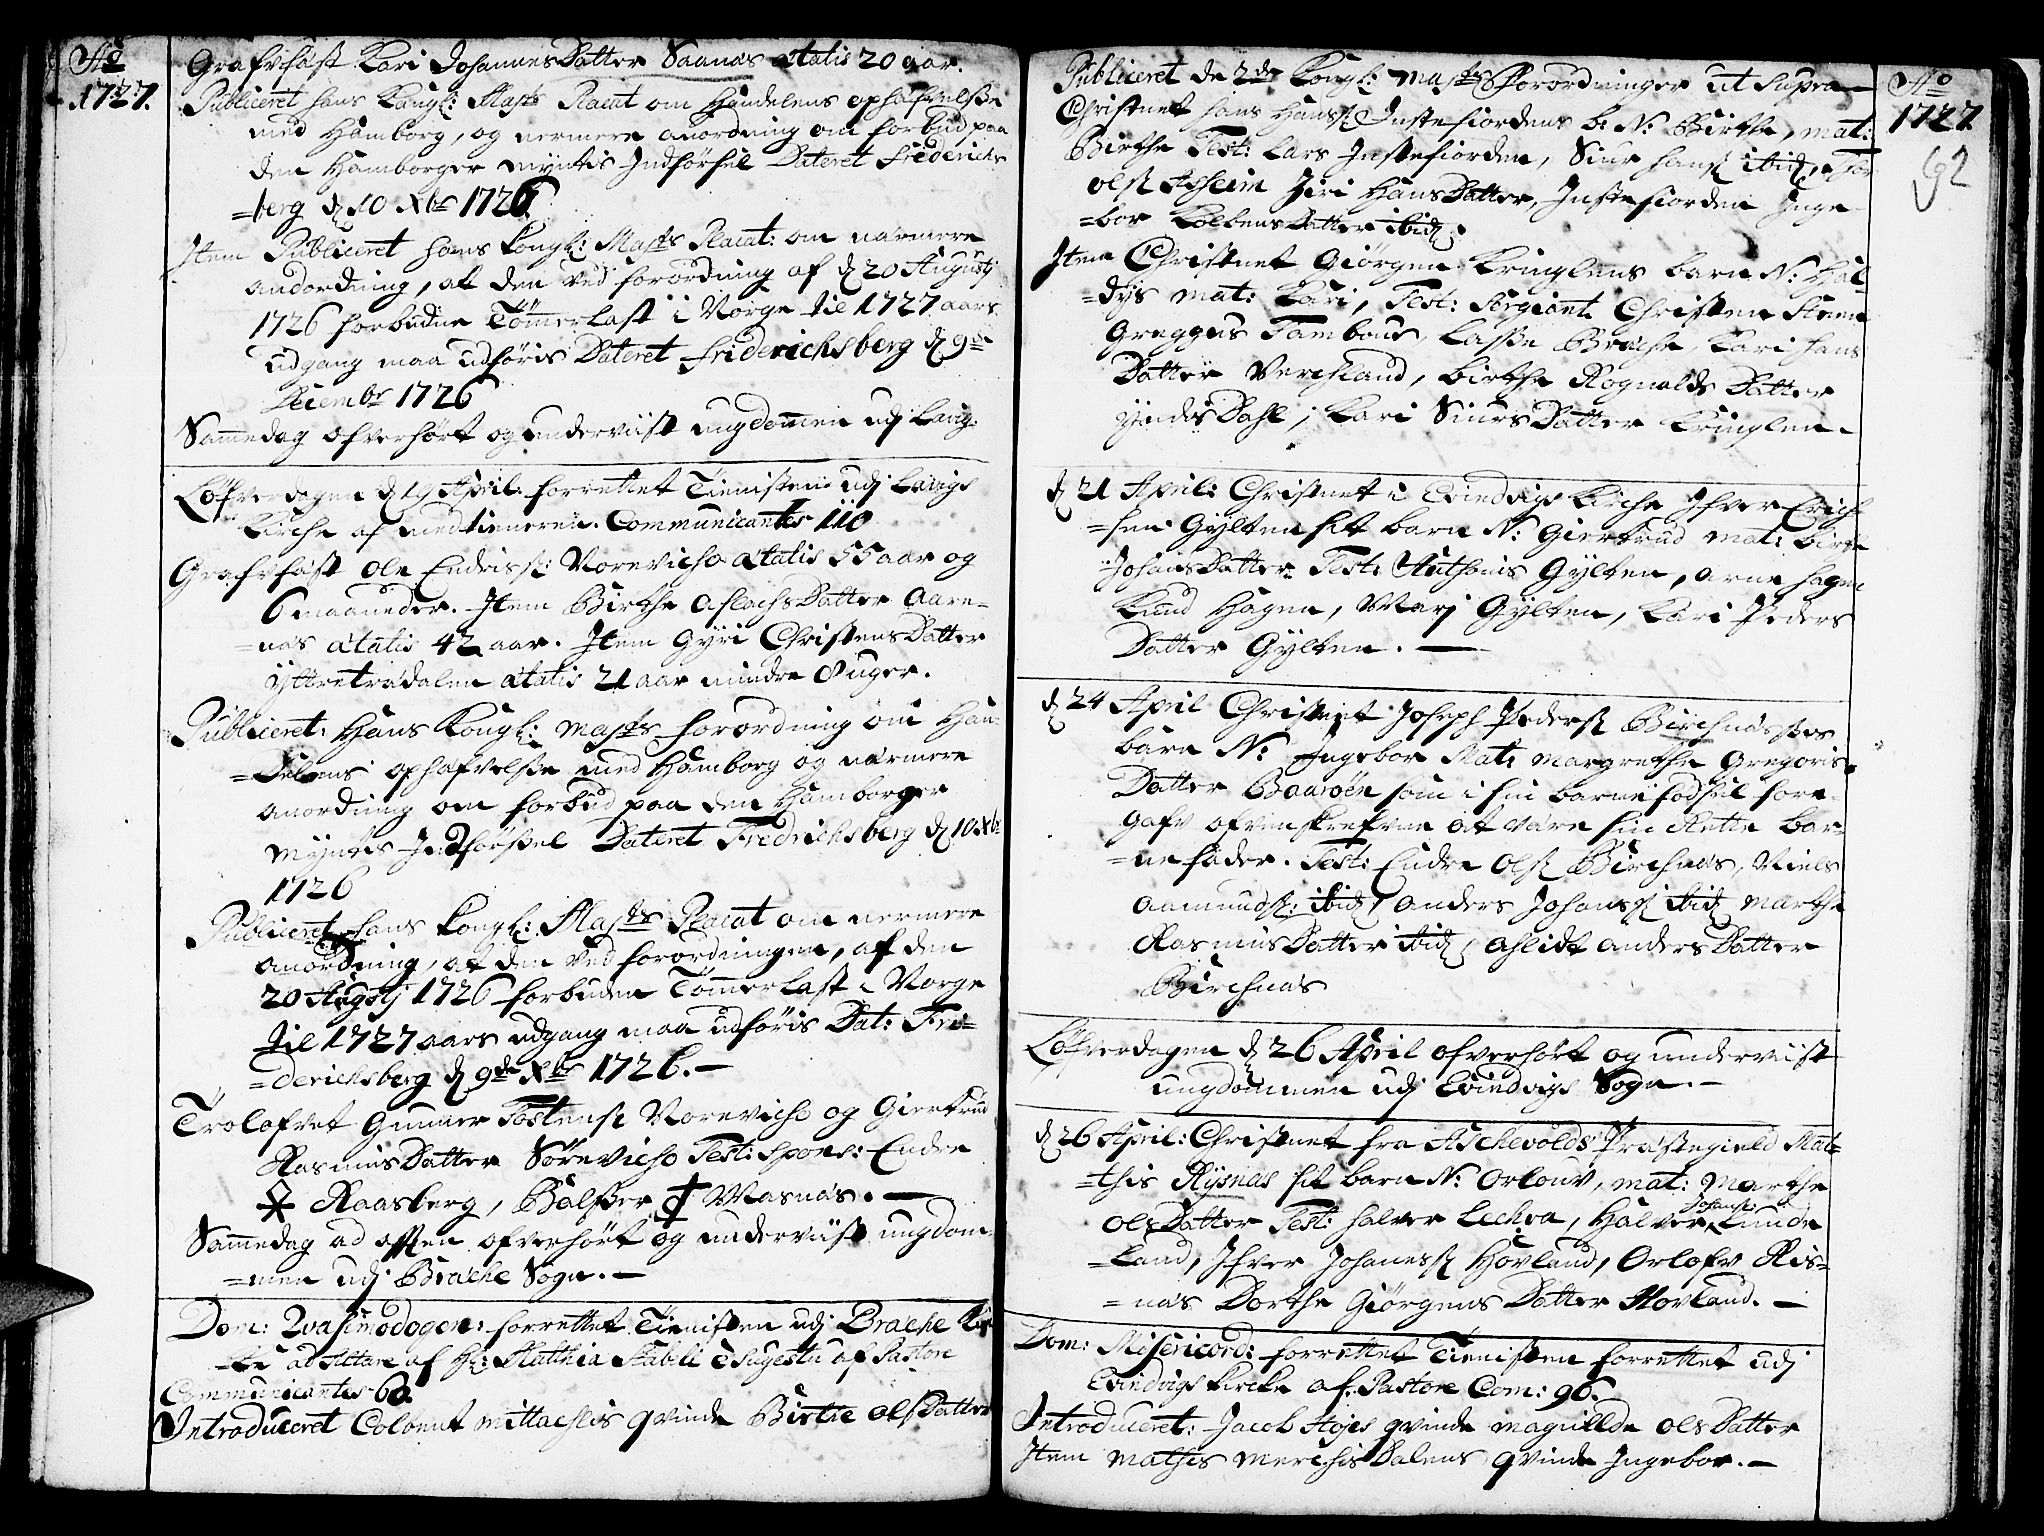 Aō
1727.
Grafvfäst Kari JohannesDatter Saanæs ætatis 20 aar.
Publiceret hans Kongl: Maÿts Placat om Handelens ophæfvelsße
med Hamborg, og nermere anordning om forbud paa
den Hamborger myntis Indførsel Dateret Friderichs
=berg d 10 Xbr 1726.
Item Publiceret hans Kongl: Mayts Placat: om nærmere
andordning, at den ved forordning af d 20 Augustj
1726 forbudne Tömerlast i Norge til 1727 aars
udgang maa udføris Dateret Friderichsberg d 9de
Decembr 1726
Samedag ofverhört og underviist ungdomen udj Lavig.
Löfverdagen d 19 April: forrettet Tienisten udj Lavigs
Kirche af medtieneren. Communicantes 110
Grafvfäst Ole Endrisß: Norevich ætatis 55 aar og
6 maaneder. Item Birthe AslachsDatter Aare-
=næs ætatis 42 aar. Item Gyri ChristensDatter
Yttretrædalen ætatis 21 aar mindre 8 uger.
Publiceret: Hans Kongl: Mayts forordning om Han-
=delens ophæfvelße med Hamborg og nærmere
anordning om forbud paa den Hamborger
Myntis Indförßel Dateret Fredrichsberg d 10 Xbr
1726
Publiceret hans Kongl: Mayts Placat om nermere
anordning, at den ved forordningen, af den
20 Augstj 1726 forbuden Tömerlast i Norge
til 1727 aars udgang maa udføris Dat: Fri=
=derichsberg d 9de Xbr 1726.-
Trolofvet Gunner Tostensß Norevich og Giertrud
RasmusDatter Sörevich Test: Spons: Endre
Raasberg, Balßer Masnæs.-
Samedag ad aften ofverhört og underviist ungdom
=men udj Bræche Sogn.-
Dom: Qvasimodogen: forrettet Tienisten udj Bræche Kir
=ke ad Altare af Hr: Matthia Stabell è Sugestu af Pastore
Communicantes 60.
Introduceret Colbent mittachis qvinde Birtie OlsDatter
Aō
1727
92
Publiceret de 2de Kongl: mayts Forordninger ut supra
Christnet hans Hansß: Instefiordens b: N: Birthe, mat:
Birthe Test: Lars Instefiorden, Siur hansß ibid,
Olsß Asheim Ziri HansDatter, Instefiorden Inge
=bor KolbensDatter ibid.
Item Christnet Giörgen Kringlens barn N: Hal-
=dys mat: Kari, Test: Sergiant Christen
Greggus Tambour, Laße Bræche, Kari Hans
Datter Verchland, birthe Rognalds Datter
Yndisdahl, Kari SiursDatter Kringlen.
d 21 April: Christnet i Evindvigs Kirche Ifver Erich
=sen Gylten sit barn N: Giertrud mat: Birthe
JohansDatter. Test: Anthonis Gylten, Arne Hagen
Knud Hagen, Marj Gylten, Kari Peders
Datter Gylten.-
d 24 April Christnet Joseph Pedersß Birchnæsses
barn N: Ingebor Mat: Margrethe Gregoris=
Datter Baaröen som i sin barnefödsel fore
gafv ofvenskrefvne at være sin Rette bar-
=nefader. Test: Endre Olsß Birchnæs, Niels
Aamundsß: ibid, Anders Johansß ibid Marthe
RasmusDatter ibid, Aslidt AndersDatter
Birchnæs
Löfverdagen d 26 April ofverhört og underviist
ungdommen udj Evindvigs Sogn.-
d 26 April: Christnet fra Aschevolds Præstegield Mat-
=this Rysnæs sit barn N: Orlouv, mat: Marthe
OlsDatter Test: Halver Lechva, Halver Johansß Lunde
=land, Ifver Johanesß Hovland, Orlofv Ris=
=næs Dorthe GiörgensDatter Hovland.-
Dom: Misericord: forrettet Tienisten forrettet udj
Evindvigs Kircke af Pastore Com: 96.
Introduceret: Jacob qvinde magnilde OlsDatter
Item Mathis MerchisDalens qvinde Ingebor.-